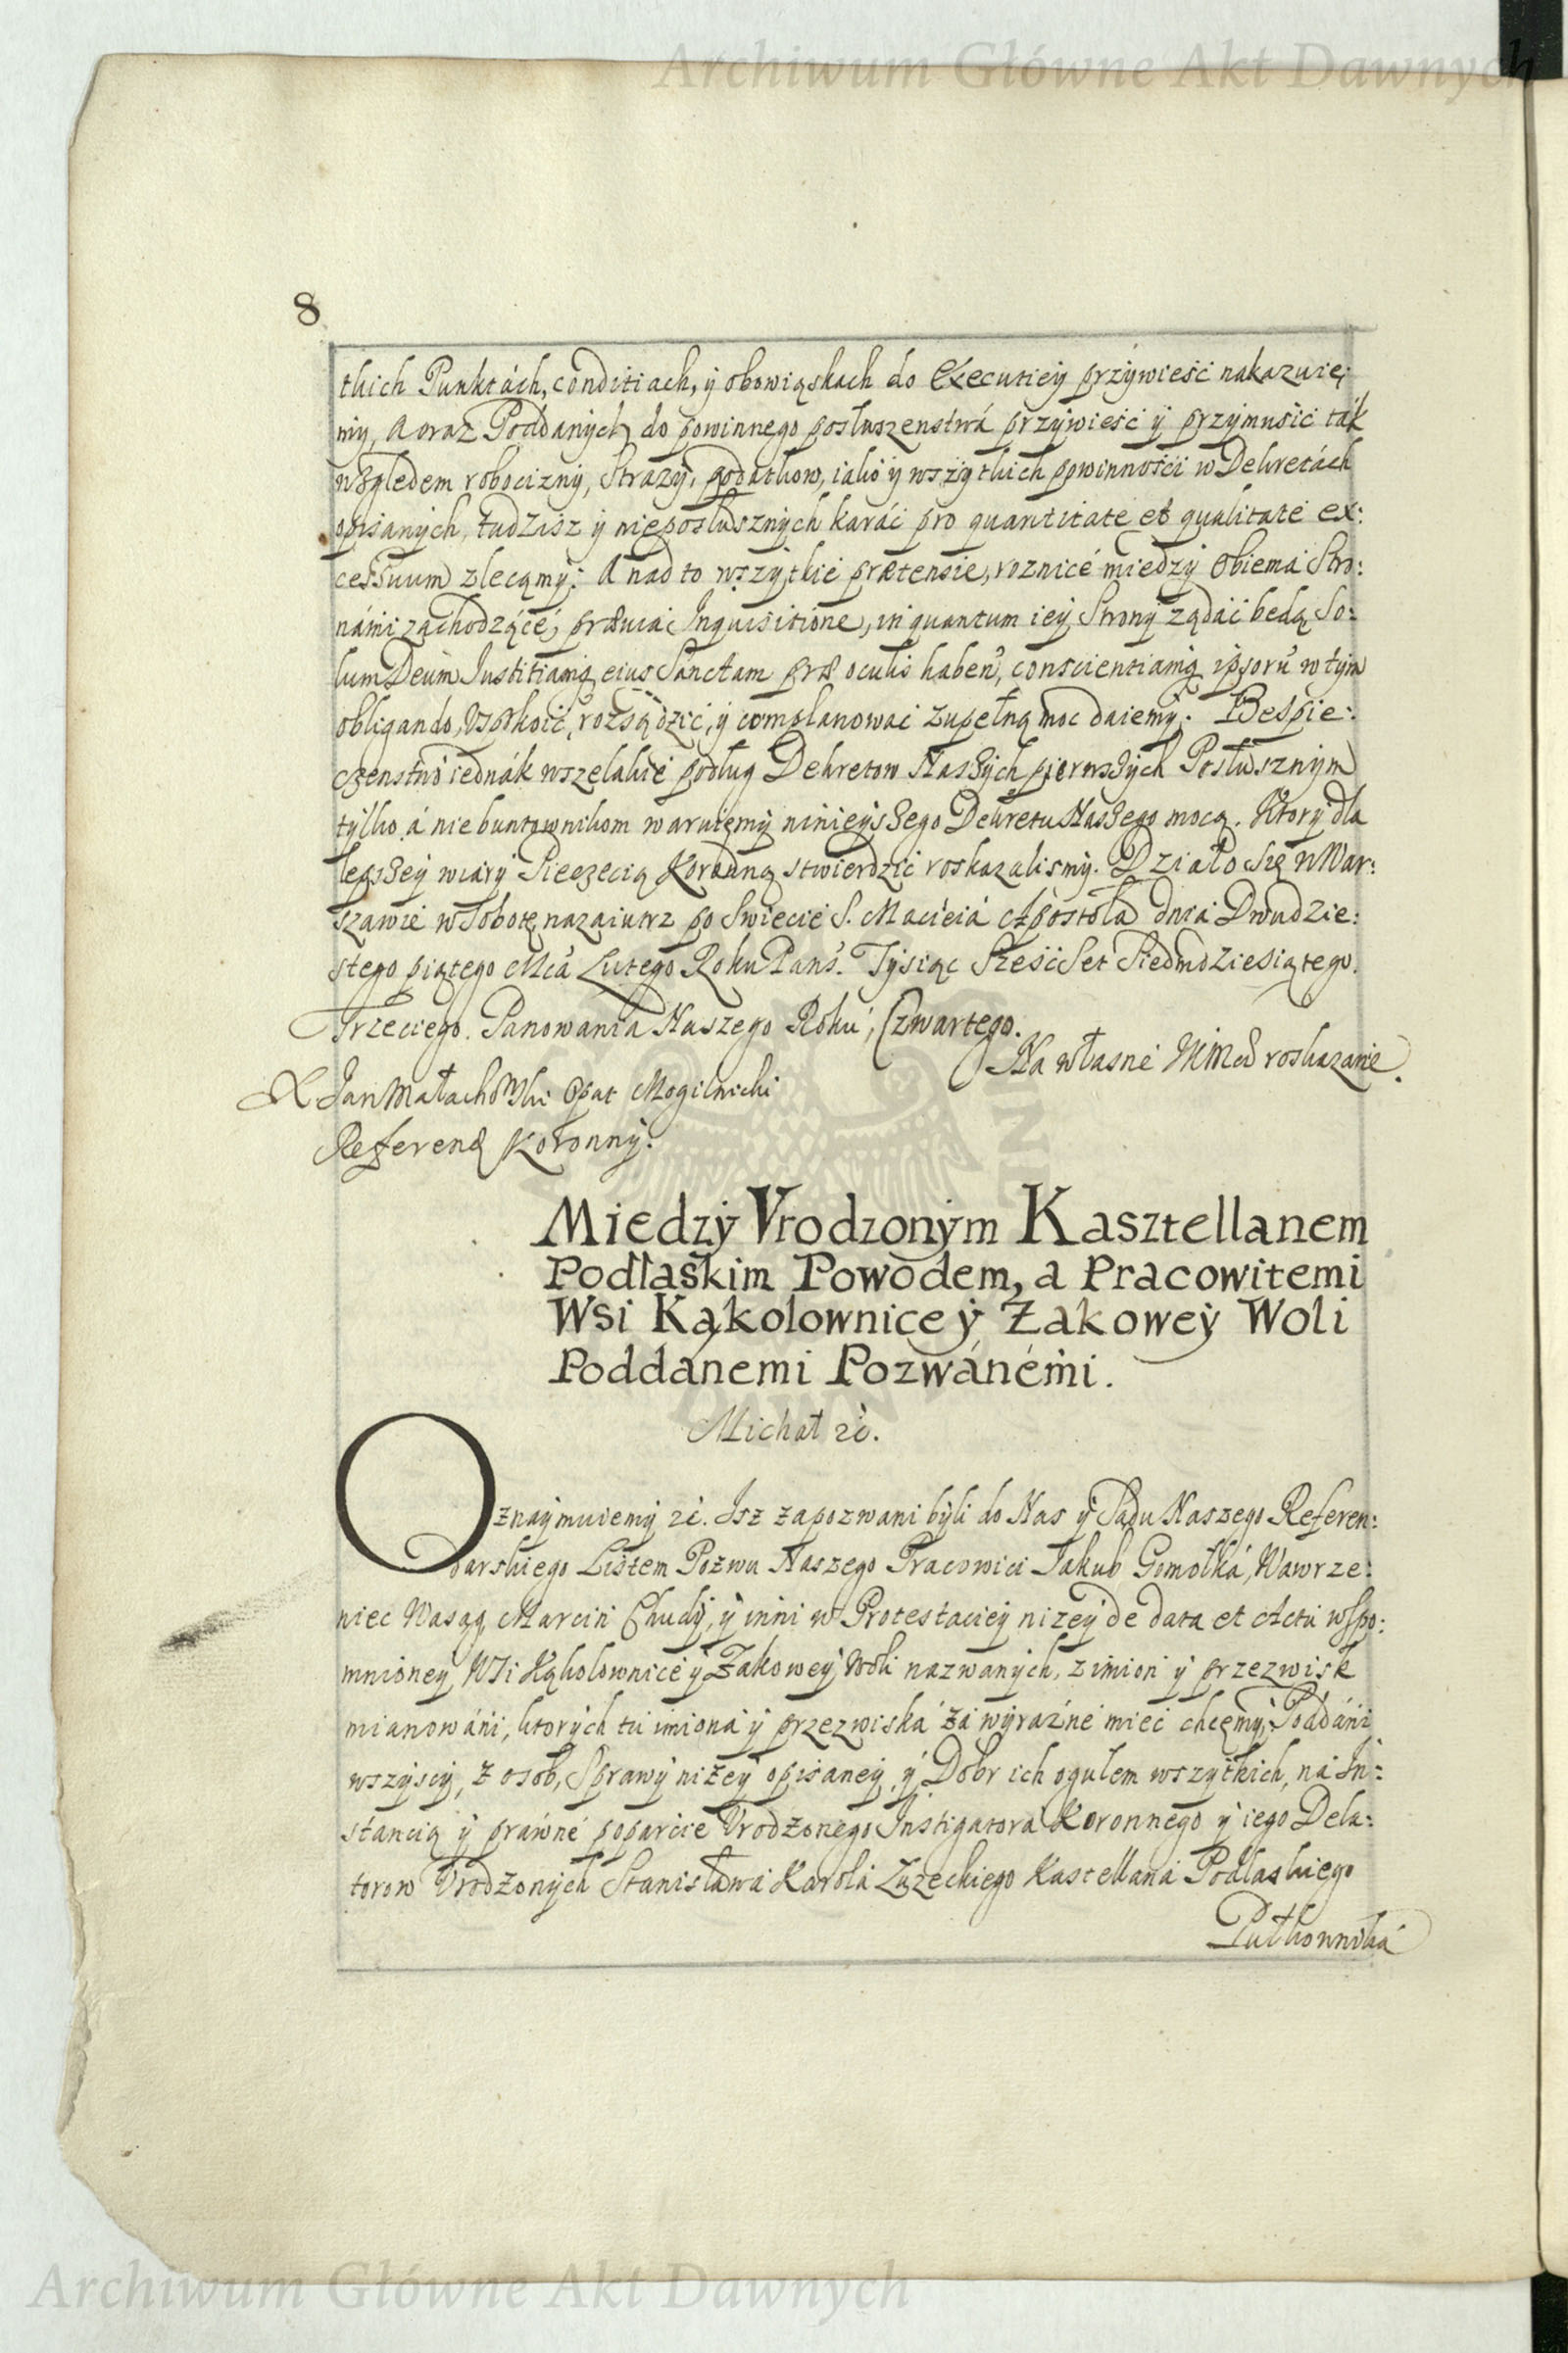 Archiwum Główne Akt Dawnych
8
tkich Punktách, conditiach, ÿ obowiąskach do Executieÿ przÿwieść nakazuie:
mÿ, A oraz Poddanÿch do powinnego posłuszenstwá przÿwieść ÿ przÿmusić ták
względem robociznÿ, Strazÿ, podatkow, iako ÿ wszÿtkich powinności w Dekretách
opisanÿch, tudzisz ÿ niéposłusznÿch karáć pro quantitate et qualitate ex:
cessuum zlecąmÿ: A nad to wszÿtkie prætensie, roznicé międzÿ obiema Stro:
námi záchodzącé, prævia Inquisitione, in quantum ieÿ Stronÿ ządać będą So:
lum Deum Justitiamq eius Sanctam præ oculis haben, conscientiamq ipsorũ w tÿm
obligando, Vspokoić, rozsądzić, ÿ complanować zupełną moc daiemÿ. Bespie:
czenstwo iednák wszelakie podług Dekretow Naszÿch pierwszÿch Posłusznÿm
tÿlko á nie buntownikom waruięmÿ ninieÿszego Dekretu Naszego mocą. Ktorÿ dla
lepszeÿ wiarÿ Pieczęcią Koronną stwierdzić roskazalismÿ. Działo Się w War:
szawie w Sobotę nazaiutrz po Swięcie S. Macieia Apostoła dnia Dwudzie:
stego piątego Mca Lutego Roku Pans. Tÿsiąc Sześć Set Siedmdziesiątego.
Trzeciego. Panowania Naszego Roku, Czwartego.
Na własne roskazanie.
X Jan Małachowski Opat Mogilnicki
Referend Koronnÿ.
Miedzÿ Vrodzonÿm Kasztellanem
Podlaskim Powodem, a Pracowitemi
Wsi Kąkolownice ÿ Żakoweÿ Woli
Poddanemi Pozwánémi.
Michał 2c.
Oznaÿmuiemÿ 2c. Isz zapozwani bÿli do Nas ÿ Sądu Naszego Referen:
darskiego Listem Pozwu Naszego Pracowici Jakub Gomołká, Wawrze:
niec Wasąg Marcin Chudÿ, ÿ inni w Protestacieÿ nizeÿ de data et Actu wspo:
mnioneÿ WSi Kąkolownice ÿ Żakoweÿ Woli nazwanÿch, z imion ÿ przezwisk
mianowáni, ktorÿch tu imiona ÿ przezwiska zá wÿrazne mieć chcęmÿ, Poddáni
wszÿscÿ, z osob, Sprawÿ nizeÿ opisaneÿ, ÿ Dobr ich ogułem wszÿtkich, na In:
stancią ÿ práwné poparcie Vrodzonego Instigatorá Koronnego ÿ iego Dela:
torow Vrodzonÿch Stanisława Karola Łuzeckiego Kastellana Podlaskiego
Pułkownika
Archiwum Główne Akt Dawnych